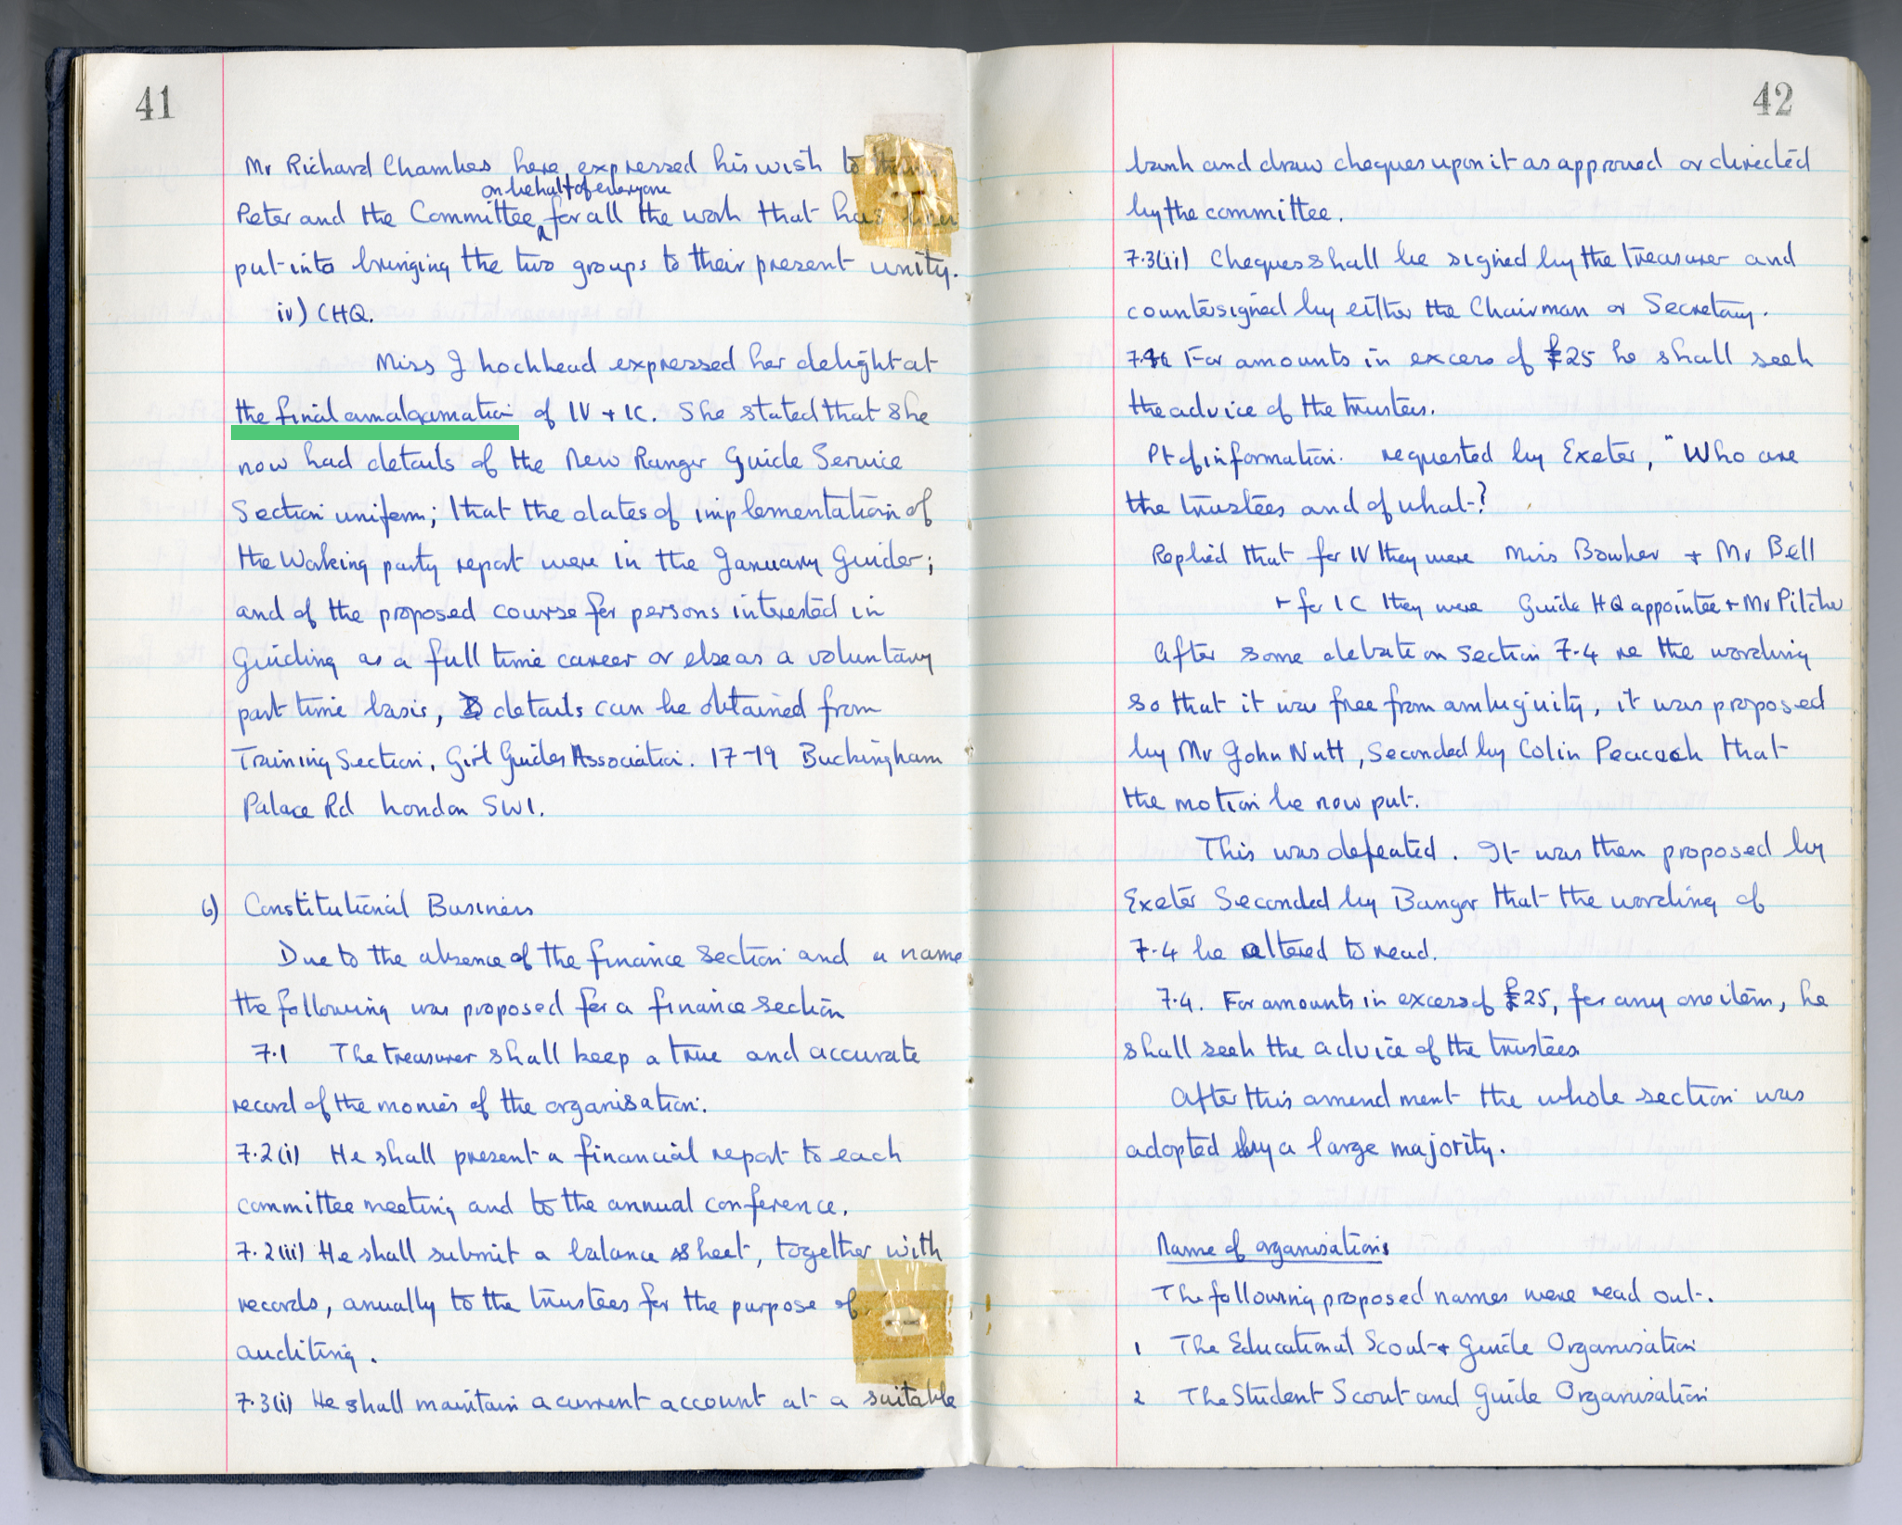 41
Mr Richard Chambers here expressed his wish to thank
on behalf of everyone
Peter and the Committee for all the work that has been
put into bringing the two groups to their present unity.
iv) CHQ.
Miss J Lochhead expressed her delight at
the final amalgamation of IV + IC. She stated that she
now had details of the New Ranger Guide Service
Section uniform; that the dates of implementation of
the Working party report were in the January Guider;
and of the proposed course for persons interested in
Guiding as a full time career or else as a voluntary
part time basis, details can be obtained from
Training Section, Girl Guides Association. 17-19 Buckingham
Palace Rd London SW1.
6) Constitutional Business
Due to the absence of the finance section and a name
the following was proposed for a finance section
7.1 The treasurer shall keep a true and accurate
record of the monies of the organisation.
7.2(i) He shall present a financial report to each
committee meeting and to the annual conference.
7.2(ii) He shall submit a balance sheet, together with
records, anually to the trustees for the purpose of
auditing.
7.3(i) He shall maintain a current account at a suitable
42
bank and draw cheques upon it as approved or directed
by the committee.
7.3(ii) Cheques shall be signed by the treasurer and
countersigned by either the Chairman or Secretary.
7.4 For amounts in excess of £25 he shall seek
the advice of the trustees.
Pt of information. requested by Exeter, "Who are
the trustees and of what?
Replied that for IV they were Miss Bowker + Mr Bell
+ for IC they were Guide HQ appointee + Mr Pilcher
After some debate on section 7.4 re the wording
so that it was free from ambiguity, it was proposed
by Mr John Nutt, Seconded by Colin Peacock that
the motion be now put.
This was defeated. It was then proposed by
Exeter Seconded by Bangor that the wording of
7.4 be altered to read.
7.4. For amounts in excess of £25, for any one item, he
shall seek the advice of the trustees
After this amendment the whole section was
adopted by a large majority.
Name of organisations
The following proposed names were read out.
1 The Educational Scout + Guide Organisation
2 The Student Scout and Guide Organisation